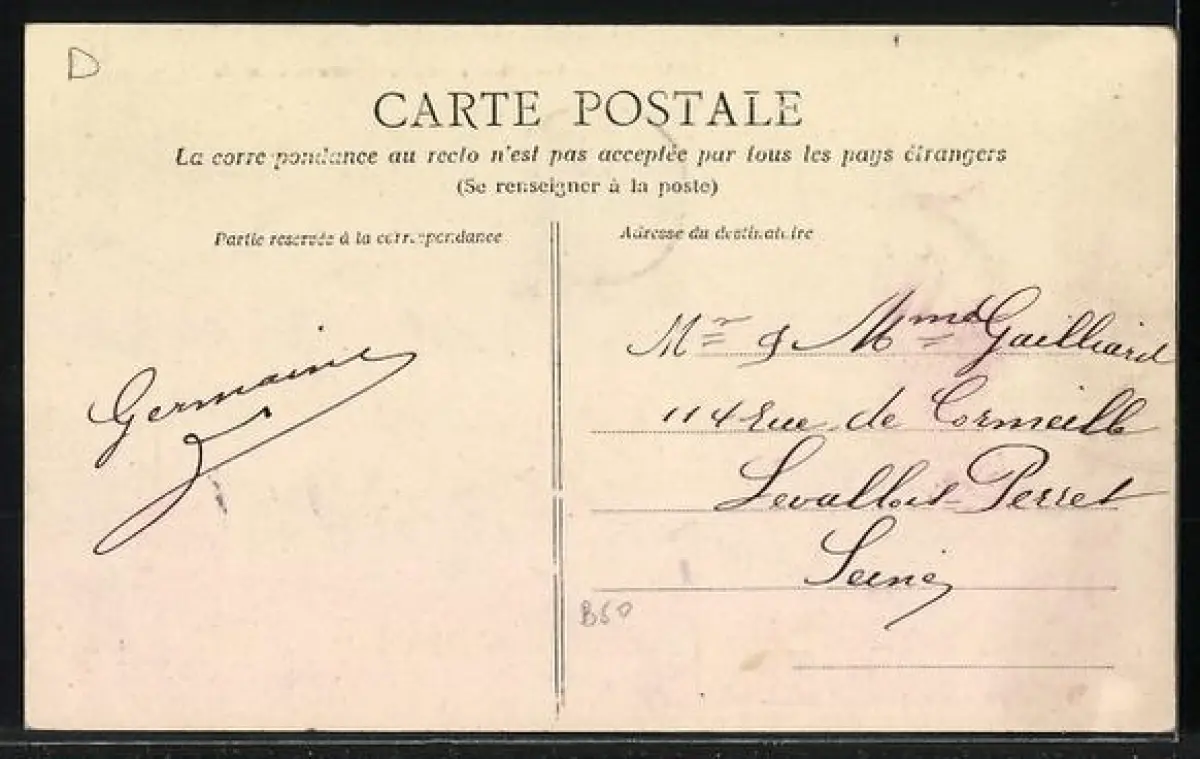 D
CARTE POSTALE
La correspondance au recto n'est pas acceptée par tous les pays étrangers
(Se renseigner à la poste)
Partie reservée à la correspondance
Adresse du destinataire
Germaine
Mr & Mme Gailliard
114 rue de Cormeille
Levallois-Perret
Seine
B50